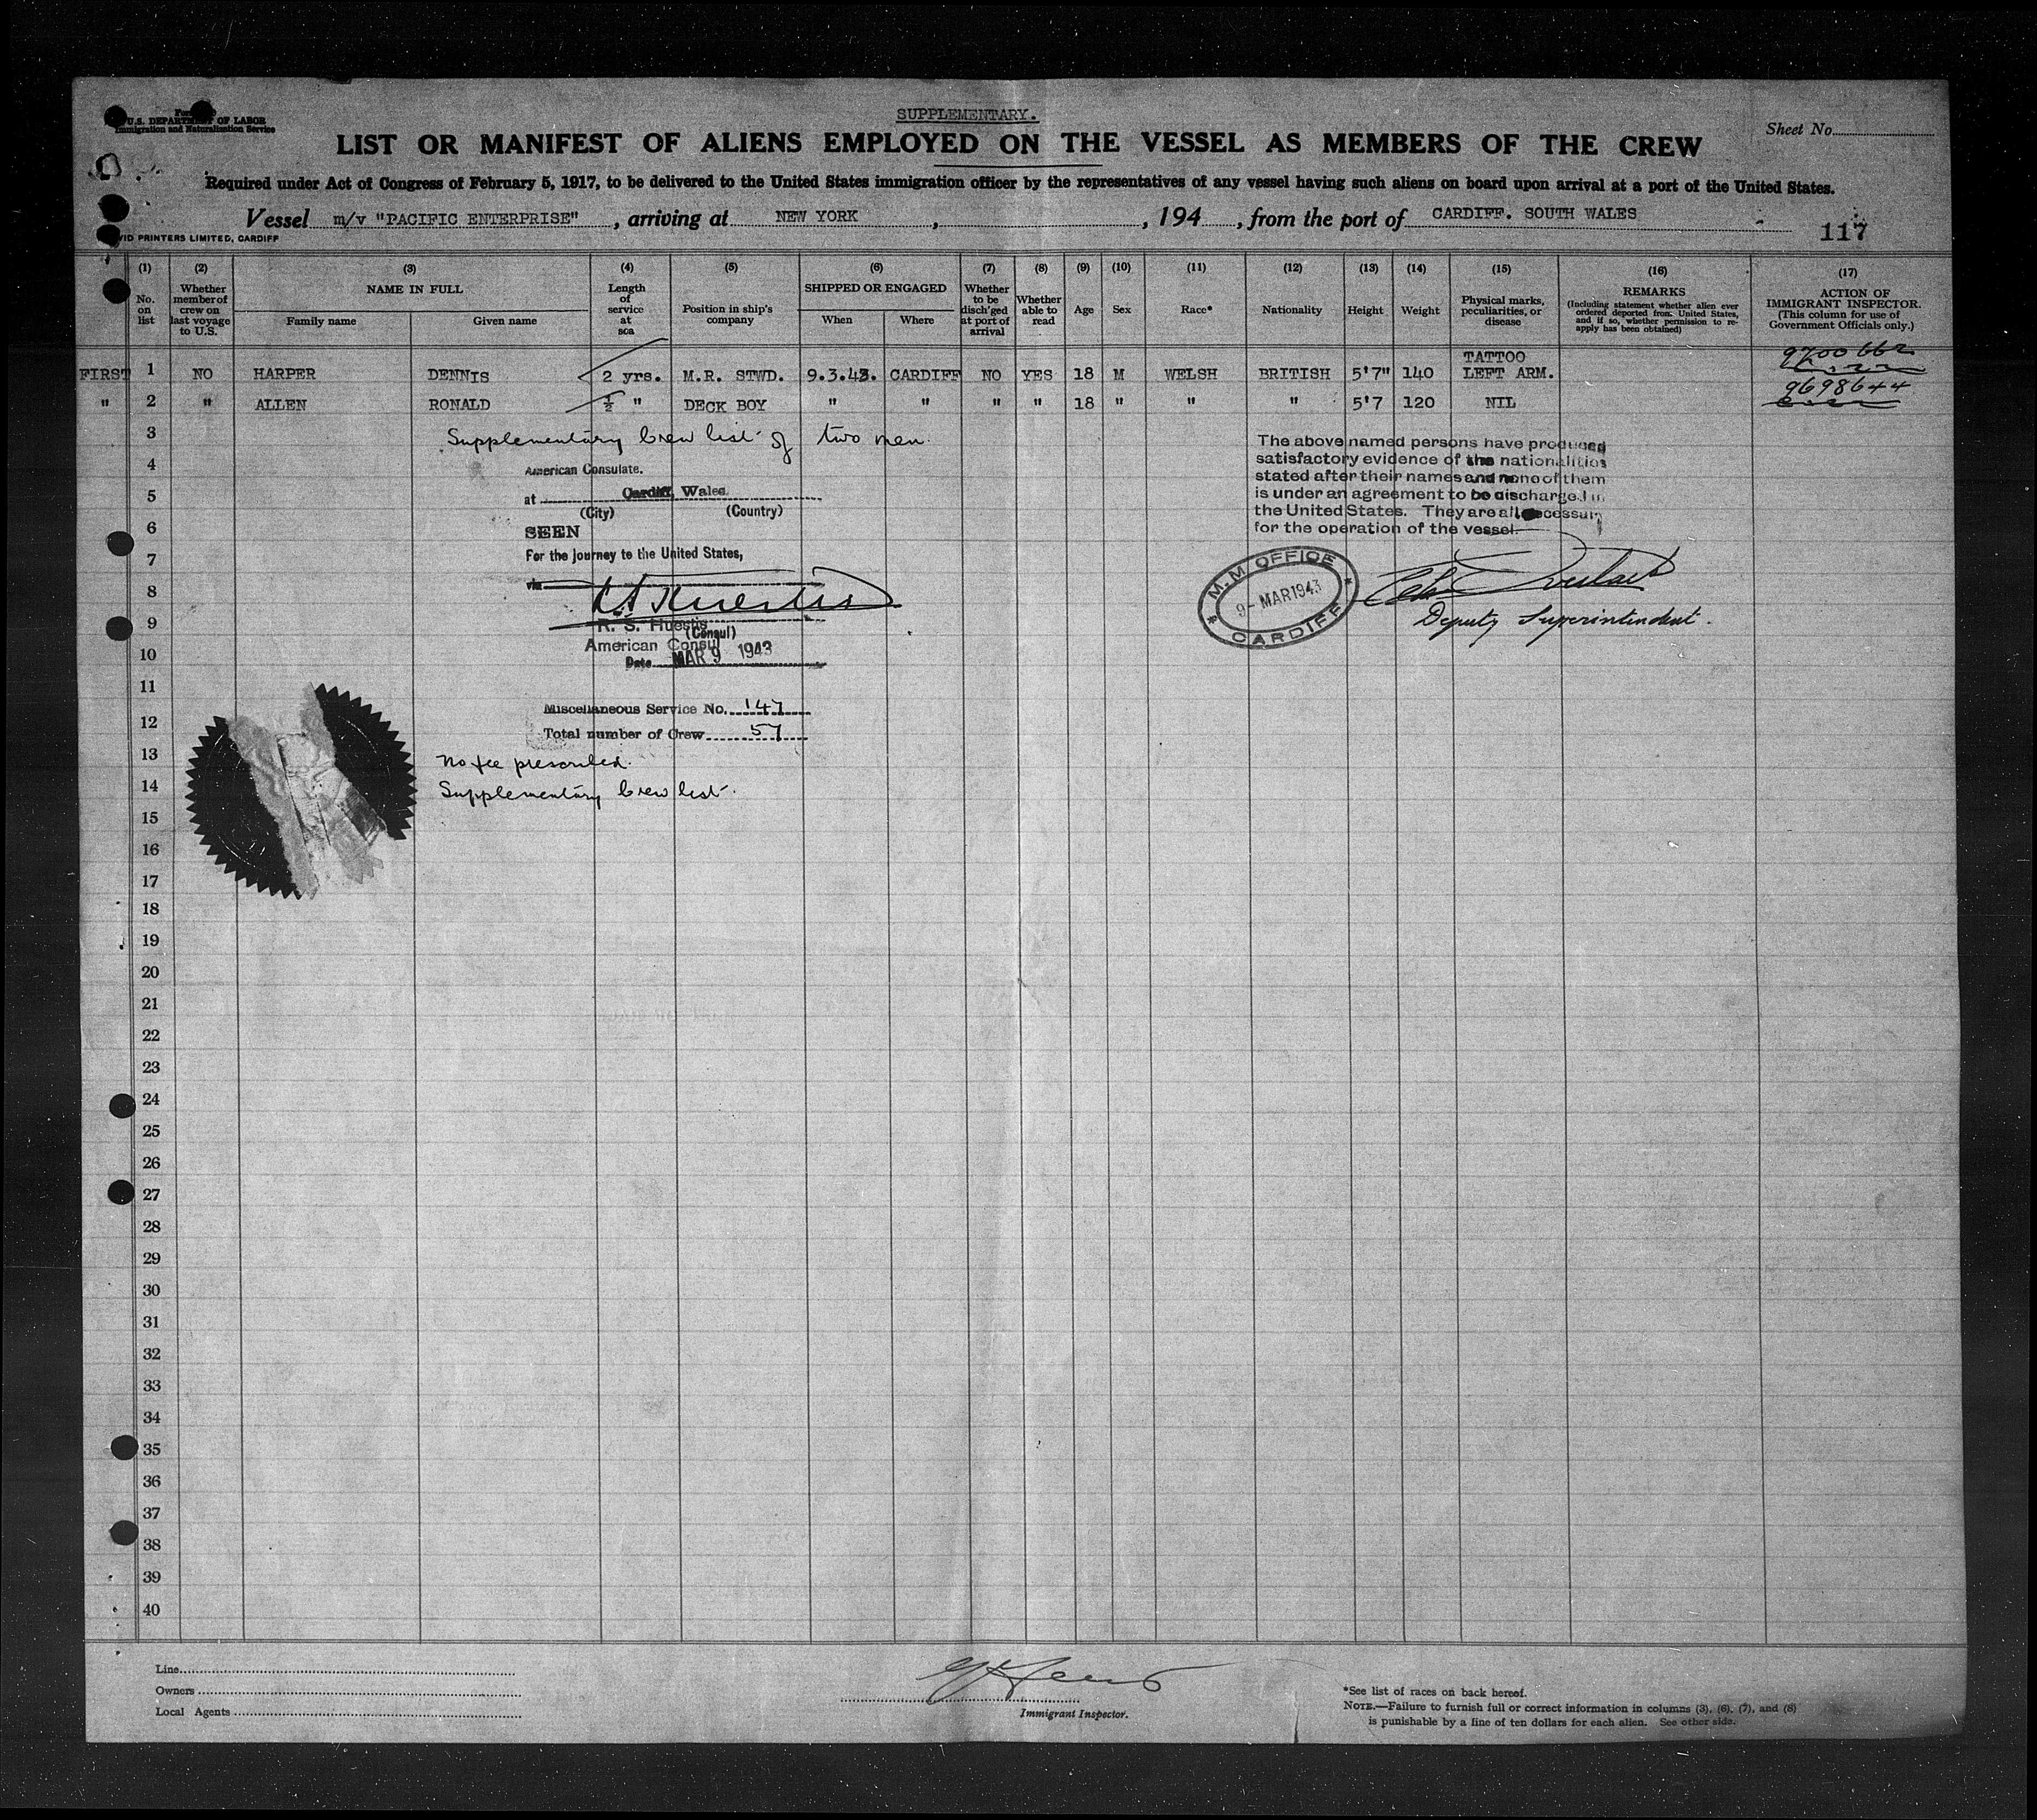 SUPPLEMENTARY.
U.S. DEPARTMENT OF LABOR
Immigration and Naturalization Service
Sheet No.
LIST OR MANIFEST OF ALIENS EMPLOYED ON THE VESSEL AS MEMBERS OF THE CREW
Required under Act of Congress of February 5, 1917, to be delivered to the United States immigration officer by the representatives of any vessel having such aliens on board upon arrival at a port of the United States.
Vessel m/v "PACIFIC ENTERPRISE", arriving at NEW YORK, , 194 , from the port of CARDIFF. SOUTH WALES
PRINTERS LIMITED, CARDIFF
117
(1) (2) (3) (4) (5) (6) (7) (8) (9) (10) (11) (12) (13) (14) (15) (16) (17)
No. on list
Whether member of crew on last voyage to U.S.
NAME IN FULL
Family name Given name
Length of service at sea
Position in ship's company
SHIPPED OR ENGAGED
When Where
Whether to be disch'ged at port of arrival
Whether able to read
Age
Sex
Race*
Nationality
Height
Weight
Physical marks, peculiarities, or disease
REMARKS
(Including statement whether alien ever ordered deported from United States, and if so, whether permission to re-apply has been obtained)
ACTION OF IMMIGRANT INSPECTOR.
(This column for use of Government Officials only.)
FIRST 1 NO HARPER DENNIS 2 yrs. M.R. STWD. 9.3.43. CARDIFF NO YES 18 M WELSH BRITISH 5'7" 140 TATTOO LEFT ARM. 9700662
" 2 " ALLEN RONALD ½ " DECK BOY " " " " 18 " " " 5'7 120 NIL 9698644
3
Supplementary Crew list of two men.
4
American Consulate.
5
at Cardiff, Wales.
(City) (Country)
6
SEEN
7
For the journey to the United States,
via
8
9
R. S. Huestis
(Consul)
American Consul
10
Date MAR 9 1943
The above named persons have produced
satisfactory evidence of the nationalities
stated after their names and none of them
is under an agreement to be discharged in
the United States. They are all necessary
for the operation of the vessel.
M.M OFFICE
9 - MAR 1943
CARDIFF
Deputy Superintendent.
11
Miscellaneous Service No. 147
12
Total number of Crew 57
13
No fee prescribed.
14
Supplementary Crew list.
15
16
17
18
19
20
21
22
23
24
25
26
27
28
29
30
31
32
33
34
35
36
37
38
39
40
Line
Owners
Local Agents
Immigrant Inspector.
*See list of races on back hereof.
NOTE.—Failure to furnish full or correct information in columns (3), (6), (7), and (8)
is punishable by a fine of ten dollars for each alien. See other side.